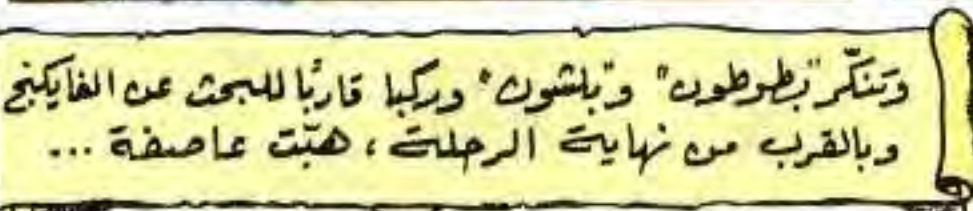 وتنكّر "بطوطون" و"بلشون" وركبا قاربًا للبحث عن الفايكنج
وبالقرب من نهاية الرحلة، هبّت عاصفة ...